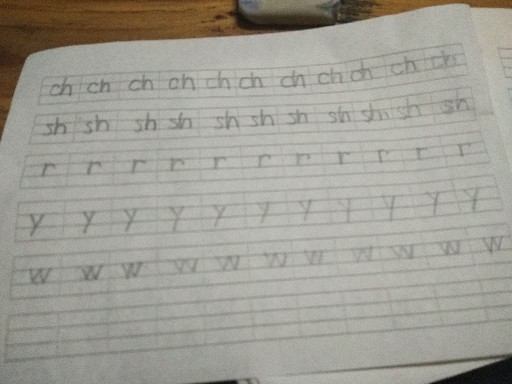 ch ch ch ch ch ch ch ch ch ch ch
sh sh sh sh sh sh sh sh sh sh sh
r r r r r r r r r r r
y y y y y y y y y y y
w w w w w w w w w w w